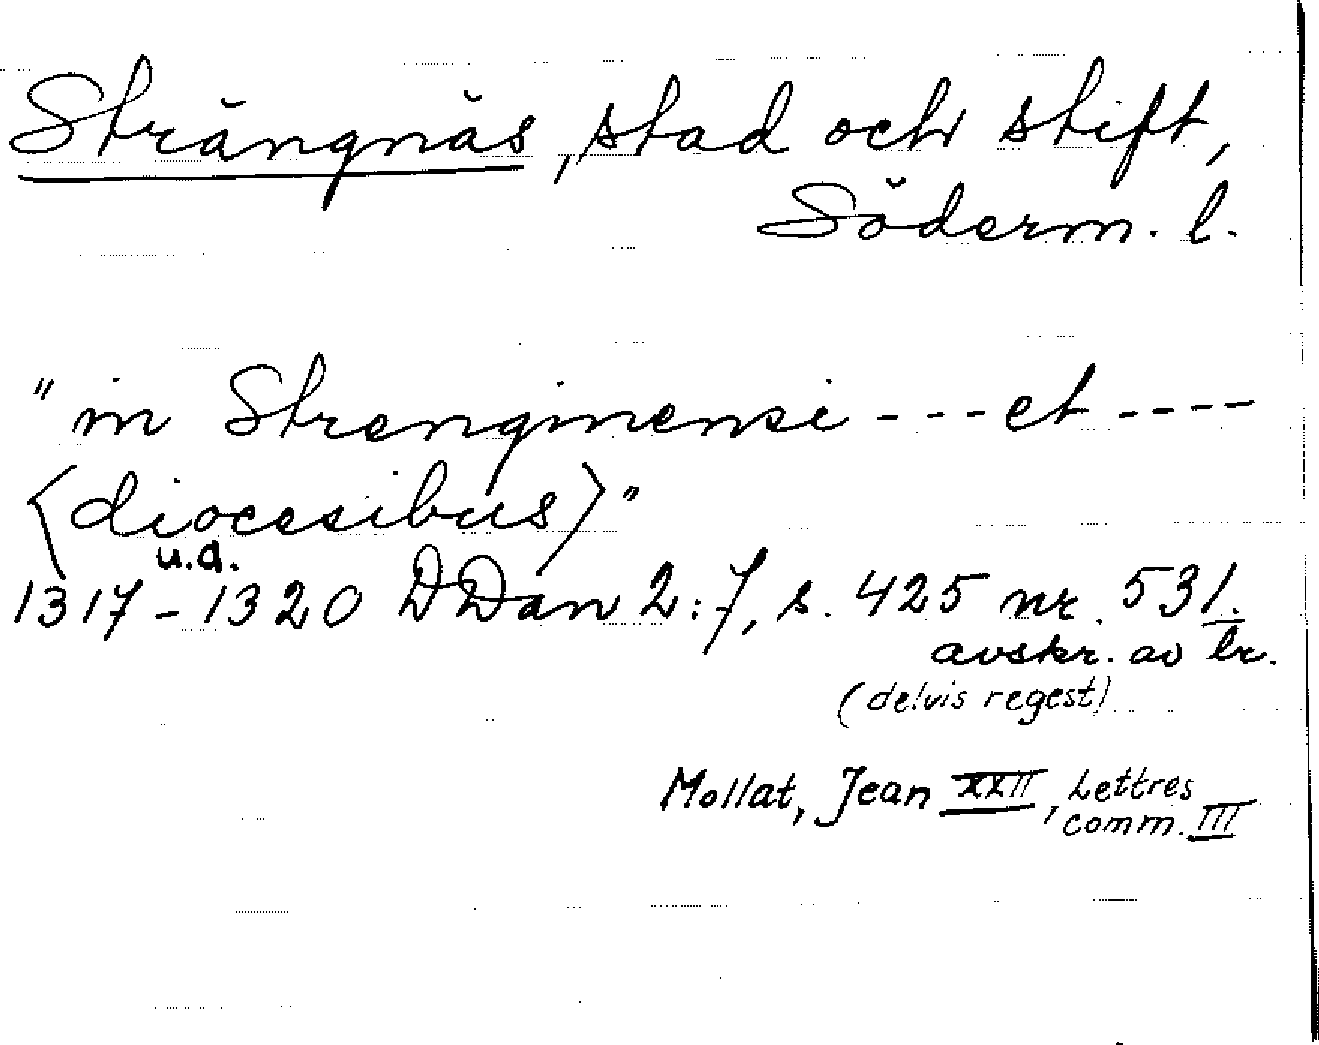 Strängnäs, stad och stift,
Söderm. l.
"in Strenginensi --- et ----
<diocesibus>"
u.a.
1317-1320 DDan 2:7, s. 425 nr. 531.
avskr. av br.
(delvis regest)
Mollat, Jean XXII, Lettres
comm. III